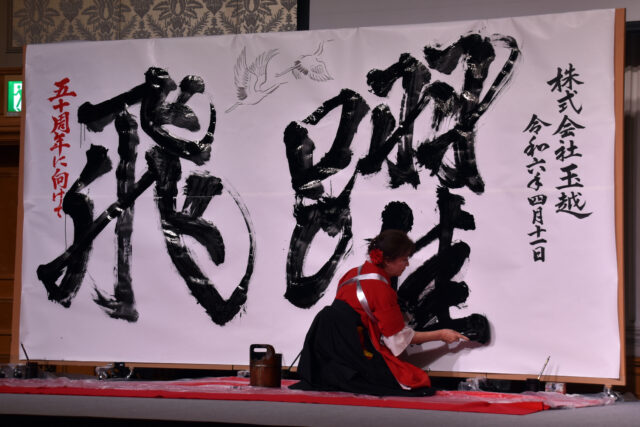 飛躍
株式会社玉越
令和六年四月十一日
五十周年に向けて